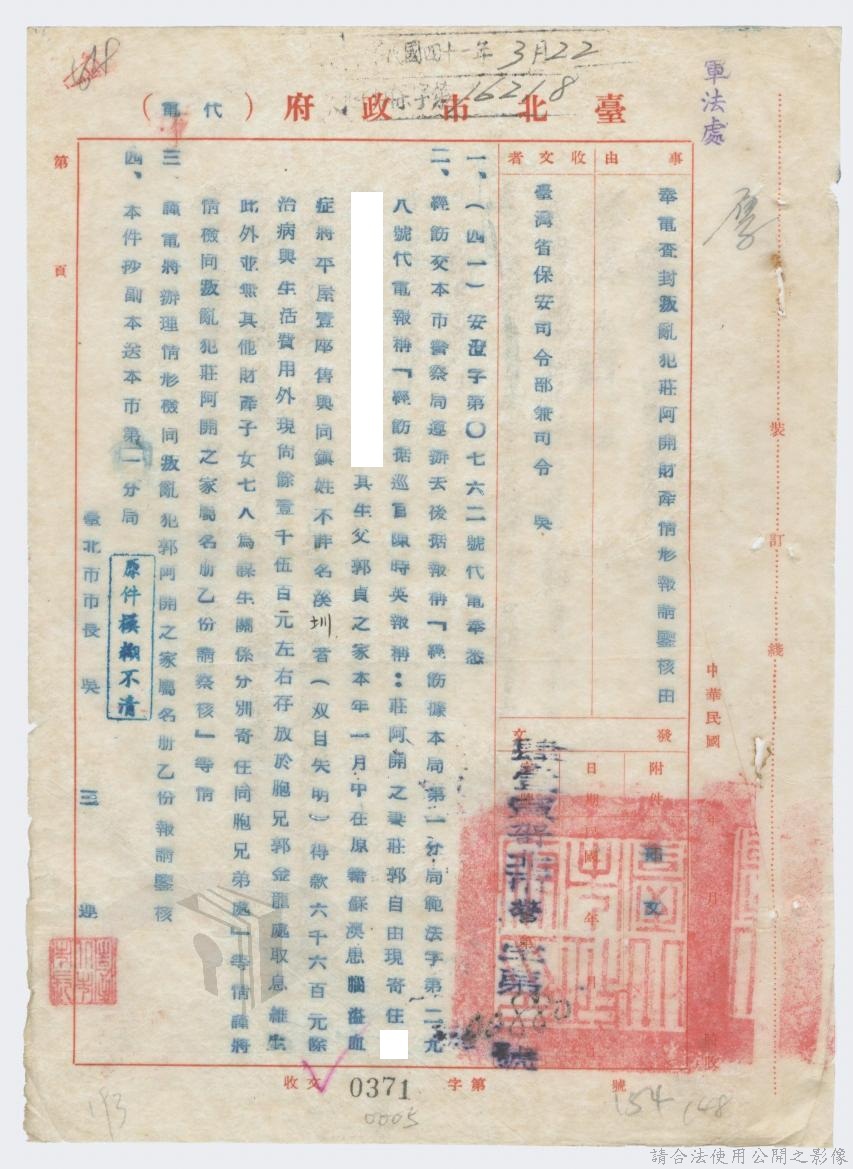 軍法處
臺北市政府（代電）
民國四十一年3月22
字第16218
事由
奉電查封叛亂犯莊阿開財產情形報請鑒核由
收文者
臺灣省保安司令部兼司令 吳
中華民國 年 月
發文
附件
如文
日期
民國 年 月
字第 號
一、（四一）安澄字第〇七六二號代電奉悉
二、經飭交本市警察局遵辦去後据報稱『經飭據本局第一分局範法字第二九
八號代電報稱『經飭据巡官陳時英報稱：莊阿開之妻莊郭自由現寄住
其生父郭貞之家本年一月中在原籍蘇澳患腦溢血
症將平屋壹座售與同鎮姓不詳名溪圳者（双目失明）得款六千六百元除
治病與生活費用外現尚餘壹千伍百元左右存放於胞兄郭金龍處取息維生
此外並無其他財產子女七人為謀生關係分別寄住同胞兄弟處』等情謹將
情檢同叛亂犯莊阿開之家屬名册乙份請察核』等情
三、謹電將辦理情形檢同叛亂犯郭阿開之家屬名册乙份報請鑒核
四、本件抄副本送本市第一分局
臺北市市長 吳三連
原件模糊不清
第 頁
裝訂綫
收文 字第 號
0371
0005
193
154
148
請合法使用公開之影像